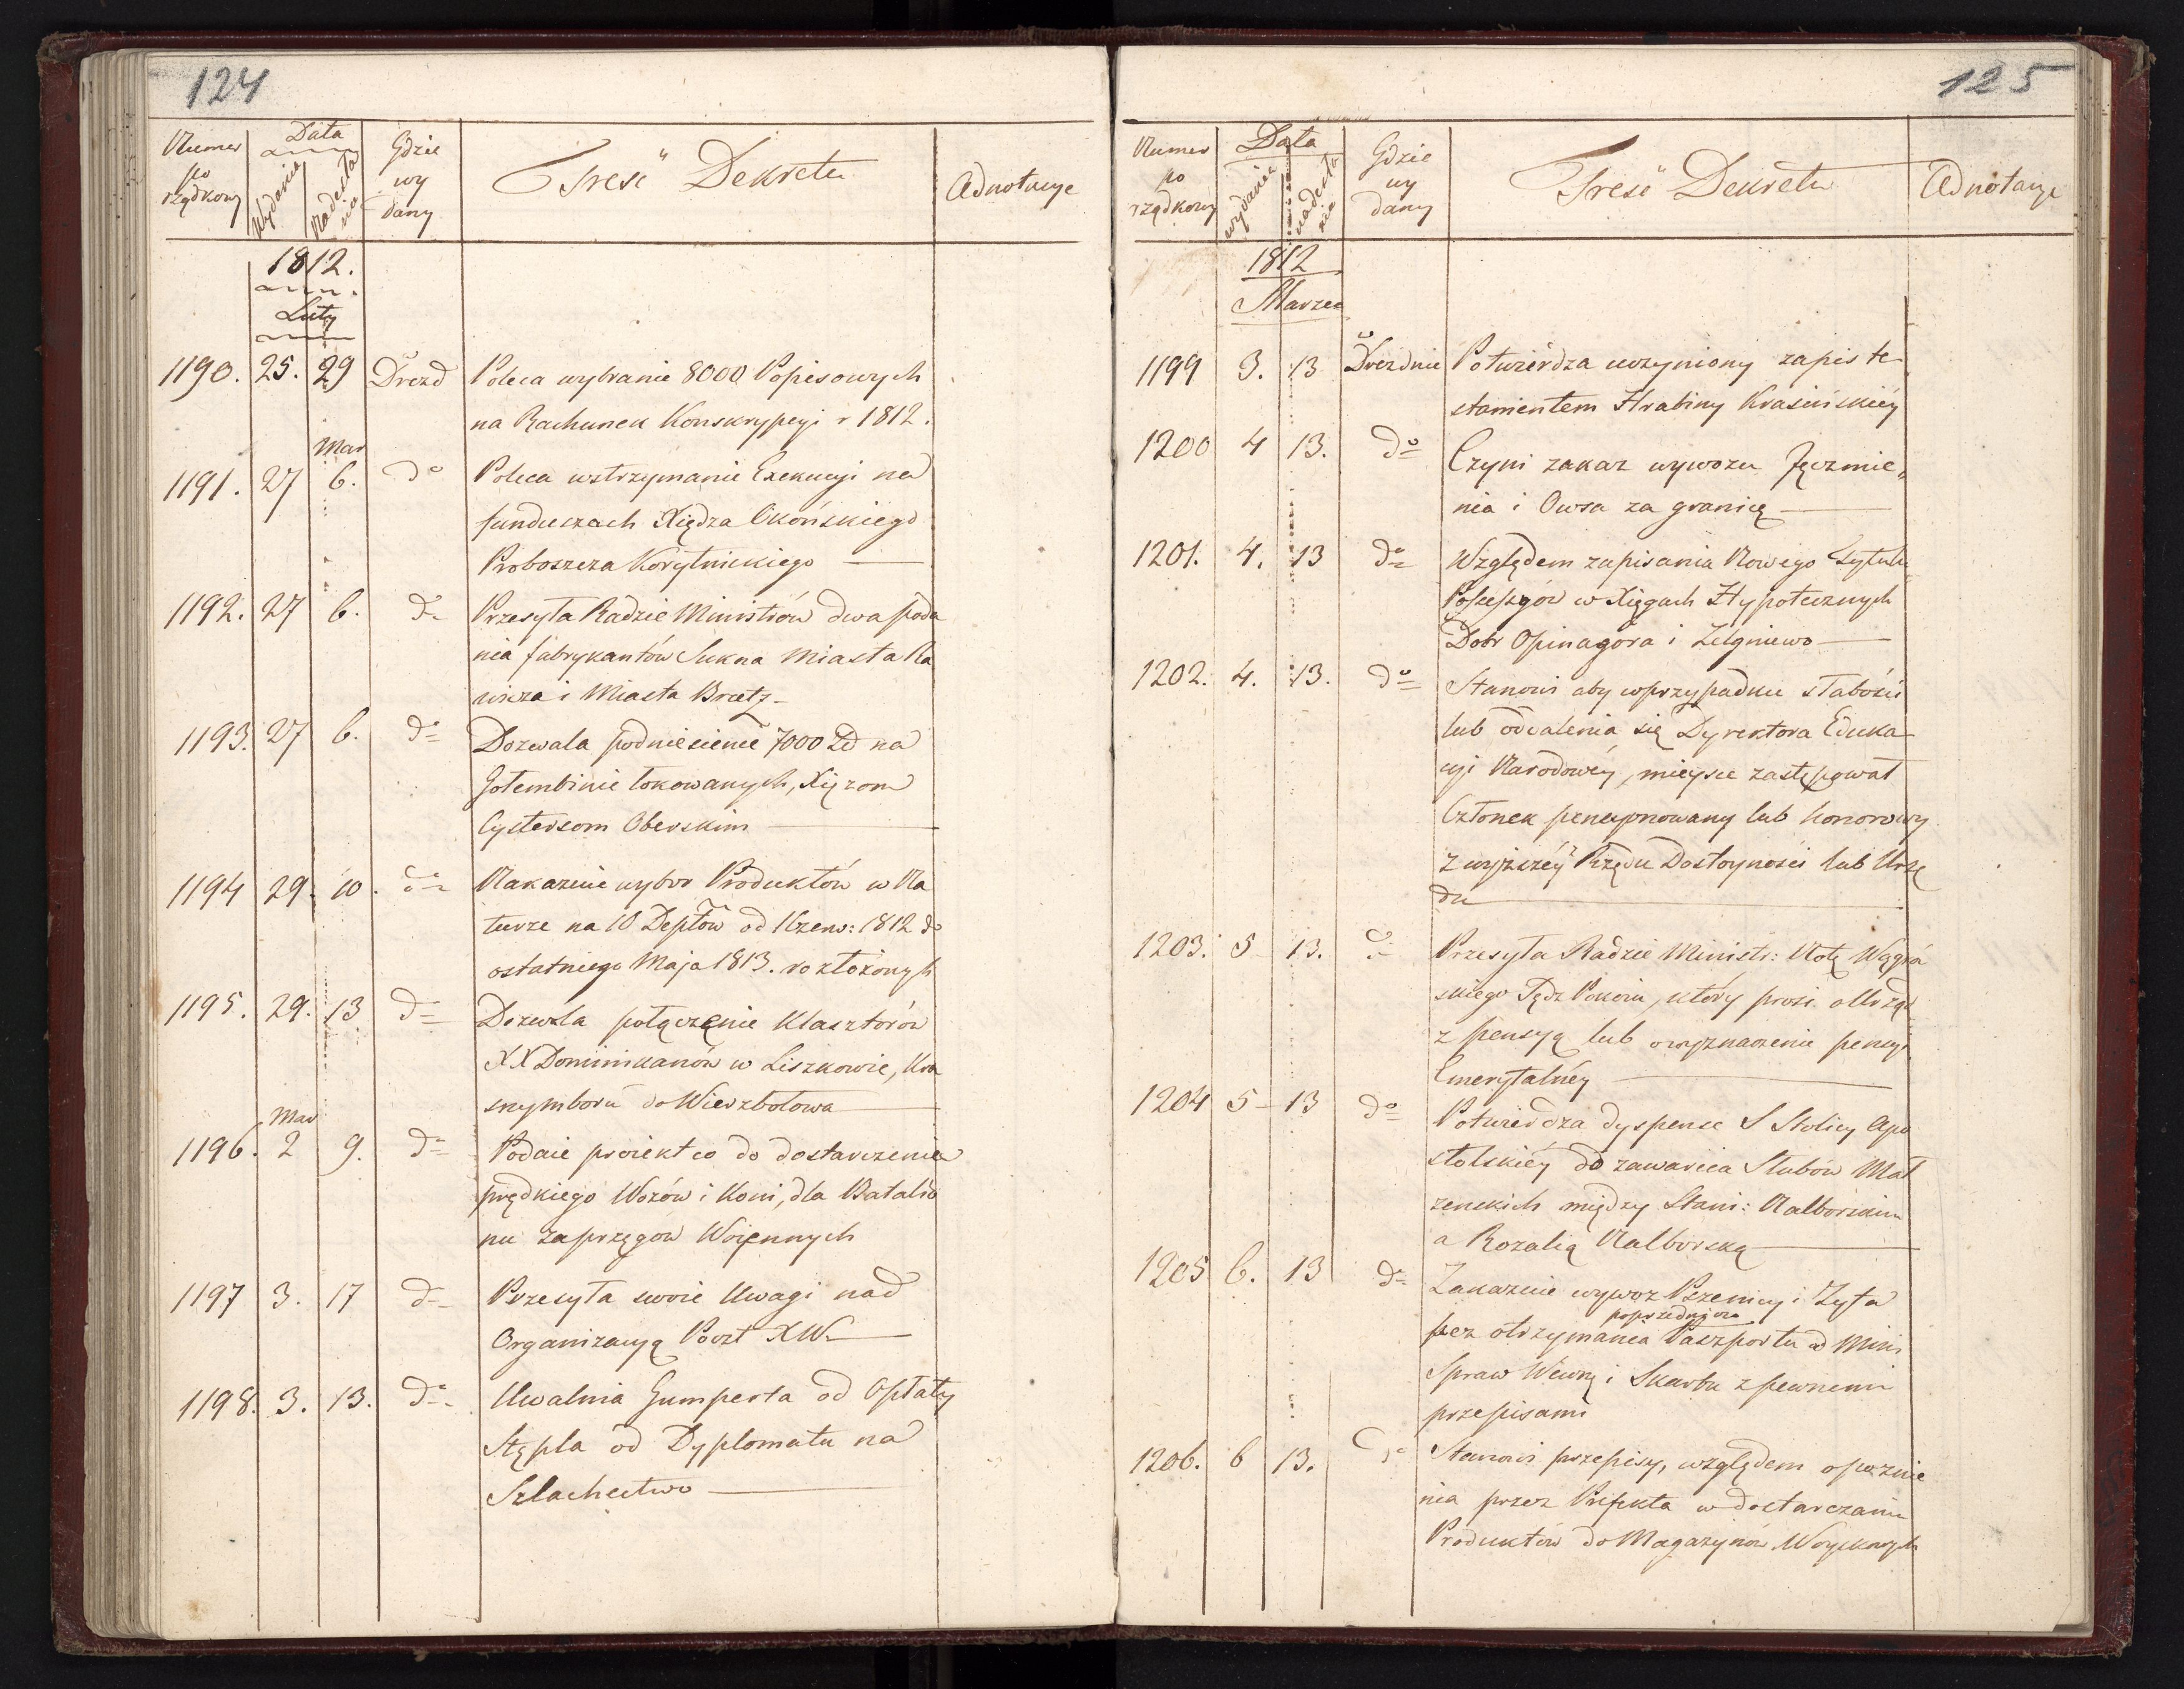 124
Numer po rządkowy | Data wydania | nadesłania | Gdzie wy dany | Treść Dekretu | Adnotacye
1812.
Luty
1190. 25. 29 Drezd Poleca wybranie 8000 Popisowych
na Rachunek Konskrypcyi r 1812.
Mar
1191. 27 6. do Poleca wstrzymanie Exekucyi na
funduszach Xiędza Okońskiego
Proboszcza Korytnickiego
1192. 27 6. do Przesyła Radzie Ministrów dwa poda
nia fabrykantów Sukna Miasta Ra
wicza i Miasta Braetz
1193. 27 6. do Dozwala podniesienie 7000 Zł na
Gołembinie lokowanych, Xiężom
Cystersom Oberskim
1194 29. 10. do Nakazuie wybor Produktów w Na
turze na 10 Deptów od 1 Czerw: 1812 do
ostatniego Maja 1813. rozłożonych
1195. 29. 13 do Dozwala połączenie Klasztorów
XX Dominikanów w Liszkowie, Kra
snymboru do Wierzbolowa
Mar
1196. 2 9. do Podaie proiekt co do dostarczenia
prędkiego Wozów i Koni, dla Batalio
nu zaprzęgow Woiennych
1197 3. 17 do Przesyła swoie Uwagi nad
Organizacyą Poczt XW.
1198. 3. 13. do Uwalnia Gumperta od Opłaty
Stępla od Dyplomatu na
Szlachectwo
125
Numer po rządkowy | Data wydania | nadesłania | Gdzie wy dany | Treść Dekretu | Adnotacye
1812
Marzec
1199 3. 13 Dreznie Potwierdza uczyniony zapis te
stamentem Hrabiny Krasińskiéy
1200 4 13. do Czyni zakaz wywozu Jęczmie„
nia i Owsa za granicę
1201. 4. 13 do Względem zapisania Nowego Tytułu
Possessyów w Xięgach Hypotecznych
Dobr Opinagóra i Zelgniewo
1202. 4. 13. do Stanowi aby w przypadku słabości
lub oddalenia się Dyrektora Eduka
cyi Narodowéy, mieysce zastępował
Członek pencyonowany lub honorowy
z wyższéy Rzędu Dostoyności lub Urzę
du
1203. 5 13. do Przesyła Radzie Ministr: Notę Wągro
skiego Sędz Pokoiu, który prosi o Urząd
z pensyą lub o wyznaczenie pensyi
Emerytalnéy
1204 5 13 do Potwierdza dyspense S Stolicy Apo
stolskiéy do zawarcia Slubów Mał
zenskich między Stani: Nalborskim
a Rozalią Nalborską
1205 6. 13 do Zakazuie wywoz Pszenicy i Zyta
poprzedniczo
bez otrzymania Paszportu od Mini
Spraw Wewnę i Skarbu z pewnemi
przepisami
1206. 6 13. do Stanowi przepisy, względem opoznie
nia przez Prefekta w dostarczaniu
Produktów do Magazynów Woyskowych